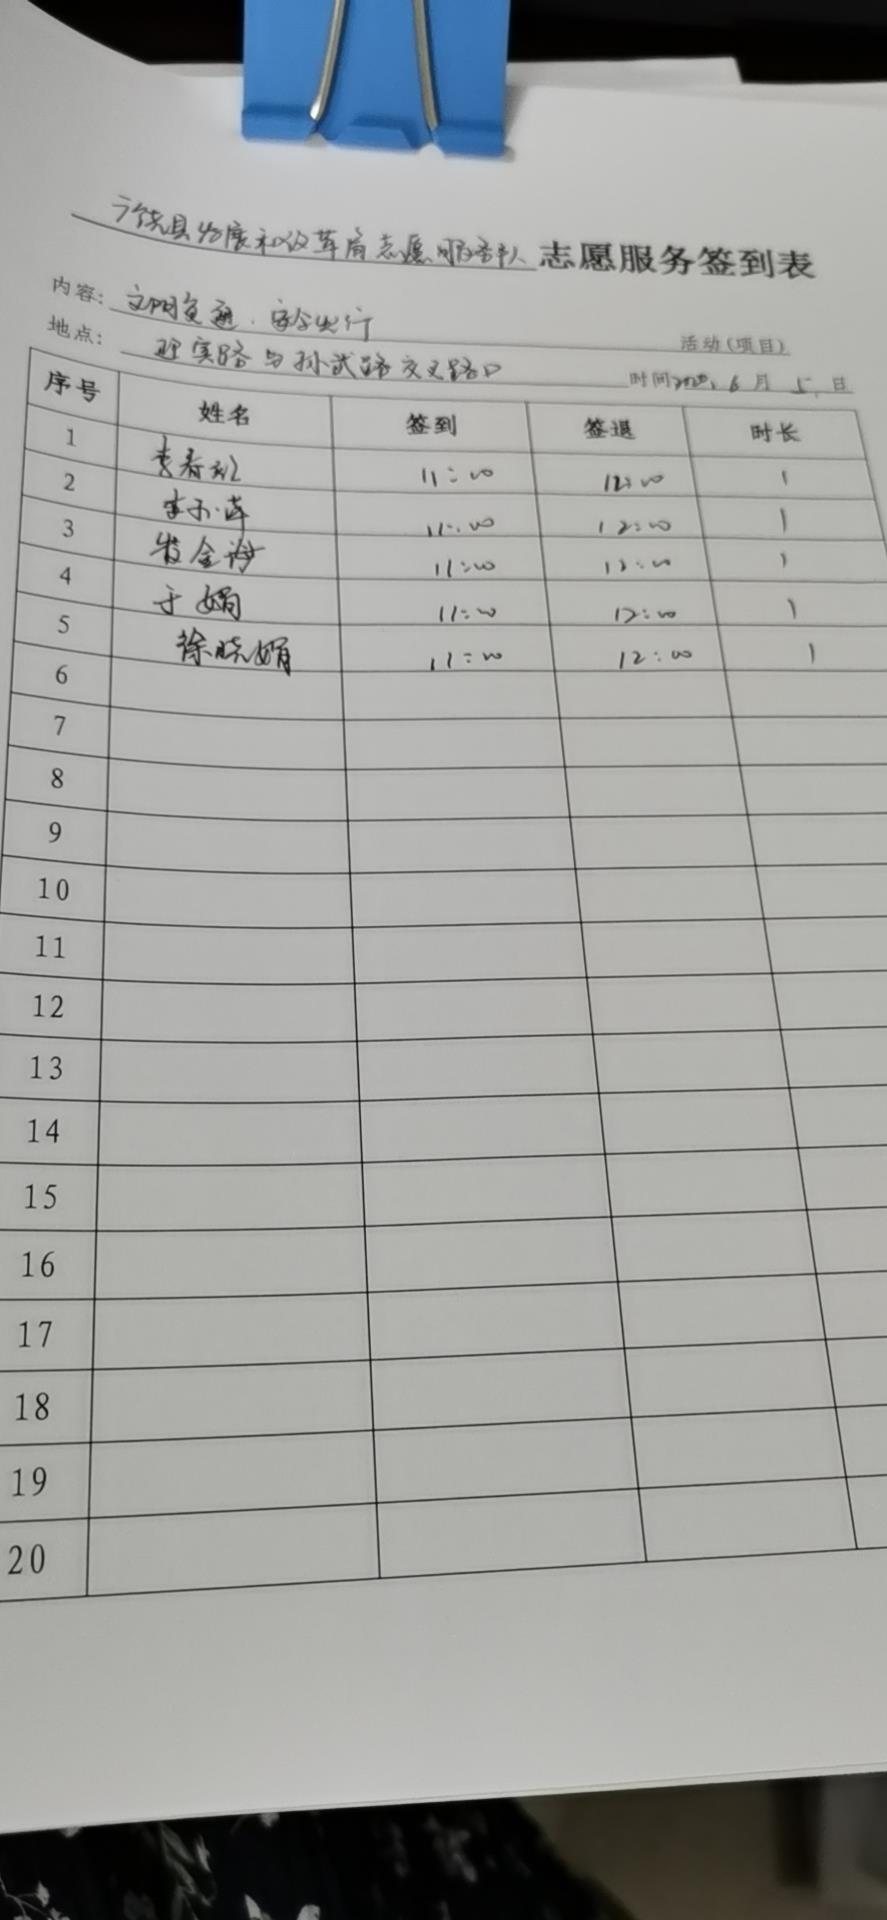 广饶县发展和改革局志愿服务队 志愿服务签到表
内容: 文明交通、安全出行 活动(项目)
地点: 乐安路与孙武路交叉路口 时间 6月5日
序号 姓名 签到 签退 时长
1 李春 11:00 12:00 1
2 李小萍 11:00 12:00 1
3 金 11:00 12:00 1
4 于娟 11:00 12:00 1
5 徐晓娟 11:00 12:00 1
6
7
8
9
10
11
12
13
14
15
16
17
18
19
20